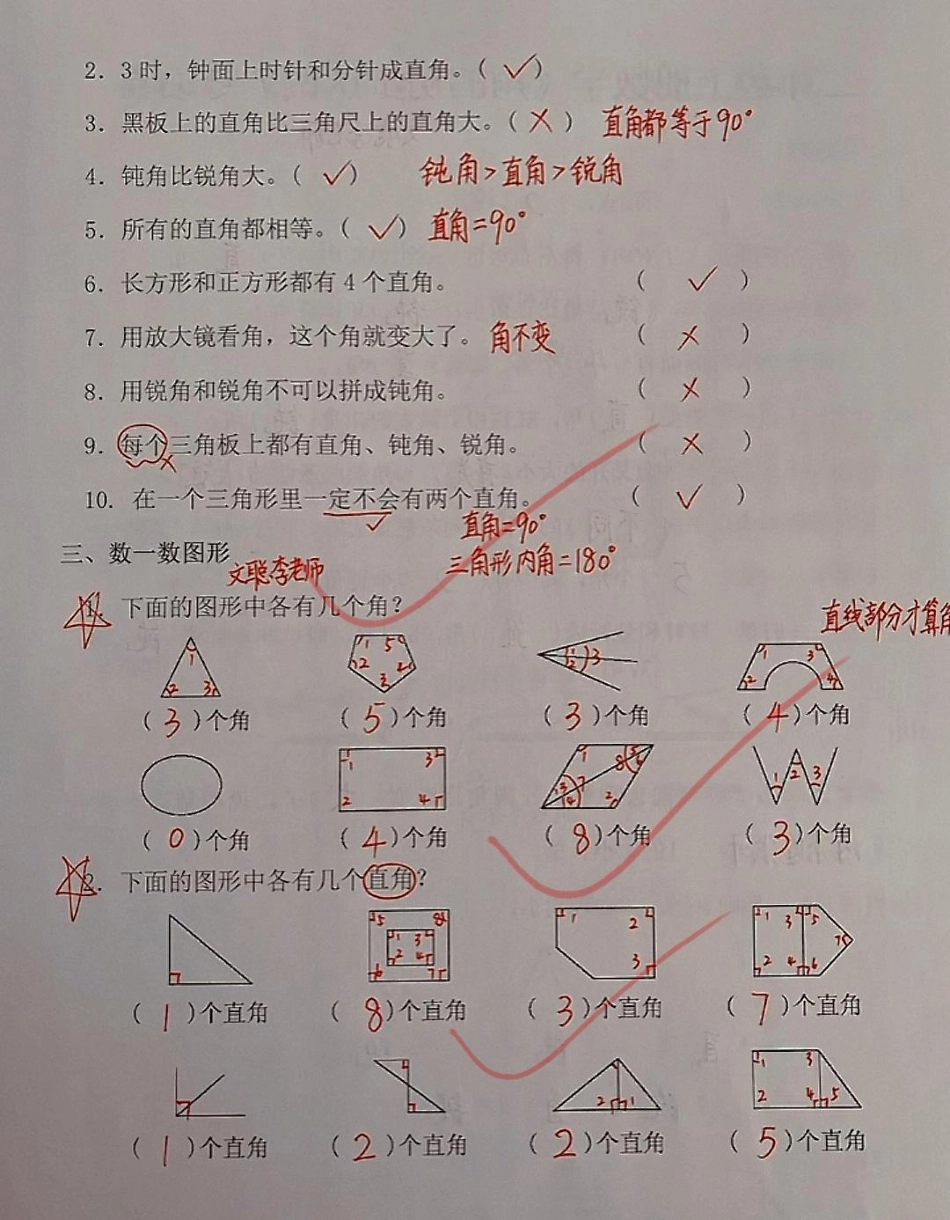 2. 3时，钟面上时针和分针成直角。( ✓ )
3. 黑板上的直角比三角尺上的直角大。( × ) 直角都等于90°
4. 钝角比锐角大。( ✓ ) 钝角>直角>锐角
5. 所有的直角都相等。( ✓ ) 直角=90°
6. 长方形和正方形都有 4 个直角。 ( ✓ )
7. 用放大镜看角，这个角就变大了。角不变 ( × )
8. 用锐角和锐角不可以拼成钝角。 ( × )
9. 每个三角板上都有直角、钝角、锐角。 ( × )
10. 在一个三角形里一定不会有两个直角。 ( ✓ )
直角=90°
三、数一数图形 三角形内角=180°
文聪李老师
1. 下面的图形中各有几个角？
直线部分才算角
1 2 3
1 5 2 2 3
1 2 3
1 3 2 4
( 3 )个角 ( 5 )个角 ( 3 )个角 ( 4 )个角
1 3 2 4
1 8 5 6 3 4 7 2
1 2 3
( 0 )个角 ( 4 )个角 ( 8 )个角 ( 3 )个角
2. 下面的图形中各有几个直角？
5 8 1 3 2 4 6 7
1 2 3
1 3 5 7 2 4 6
( 1 )个直角 ( 8 )个直角 ( 3 )个直角 ( 7 )个直角
2 1
1 3 2 4 5
( 1 )个直角 ( 2 )个直角 ( 2 )个直角 ( 5 )个直角